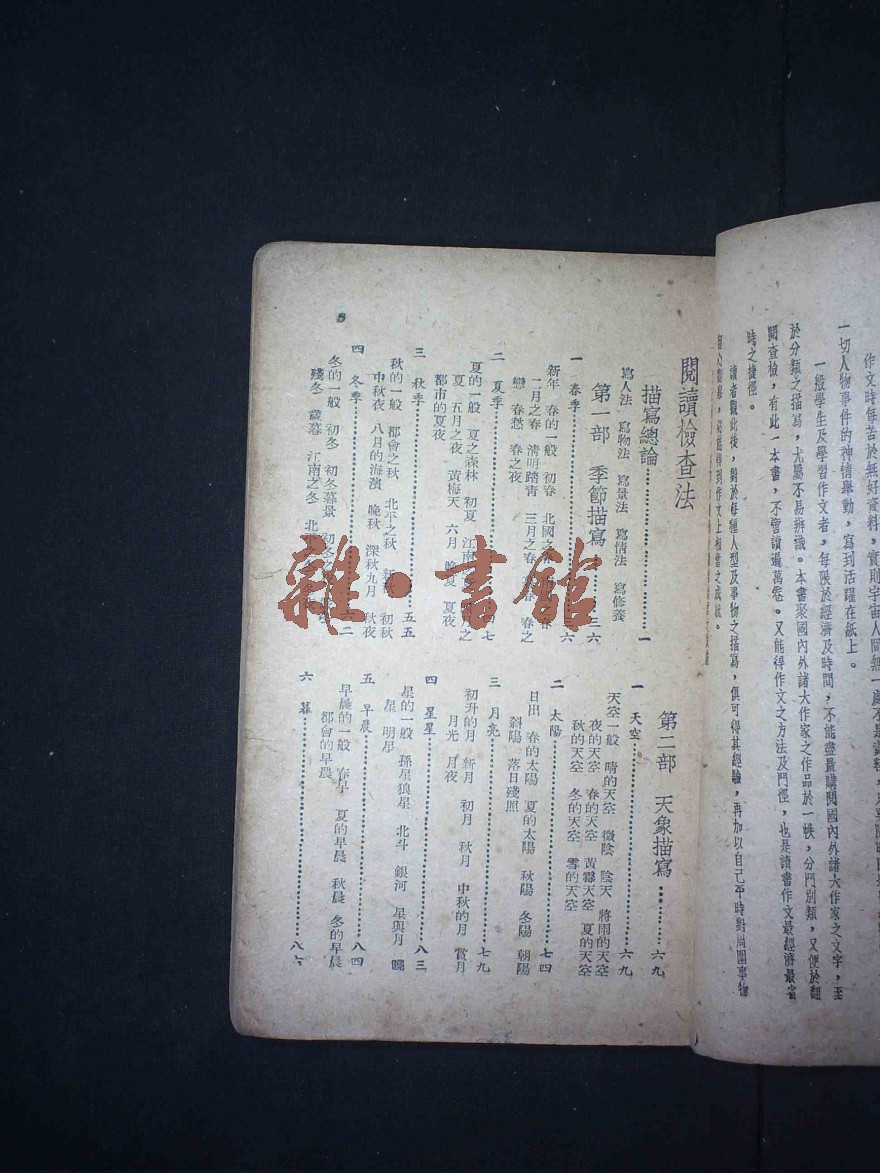 作文時每苦於無好資料，實則宇宙人間無一處不是
一切人物事件的神情舉動，寫到活躍在紙上。
一般學生及學習作文者，每限於經濟及時間，不能盡量購閱國內外諸大作家之文字，至
於分類之描寫，尤屬不易辨識。本書聚國內外諸大作家之作品於一帙，分門別類，又便於翻
閱查檢，有此一本書，不啻讀遍萬卷。又能得作文之方法及門徑，也是讀書作文最經濟最省
時之捷徑。
讀者觀此後，對於每種人型及事物之描寫，俱可得其經驗，再加以自己平時對周圍事物
必能得到作文上相當之成就。
閱讀檢查法
描寫總論…………一
寫人法　寫物法　寫景法　寫情法　寫修養
第一部　季節描寫…………三六
一　春季…………三六
新年　春的一般　初春　北國之
二月之春　清明踏青　三月之春　春之
戀　春愁　春之夜
二　夏季…………四七
夏的一般　夏之森林　初夏　江南之
夏　五月之夜　黃梅天　六月　晚夏　夏夜
都市的夏夜
三　秋季…………五五
秋的一般　都會之秋　北平之秋　初秋
中秋夜　八月的海濱　晚秋　深秋九月　秋夜
四　冬季
冬的一般　初冬　初冬暮景　初冬之
殘冬　歲暮　江南之冬　北
第二部　天象描寫…………六九
一　天空…………六九
天空一般　晴的天空　微陰　陰天　將雨的天空
夜的天空　春的天空　黃霉天空　夏的天空
秋的天空　冬的天空　雪的天空
二　太陽…………七四
日出　春的太陽　夏的太陽　秋陽　冬陽　朝陽
斜陽　落日殘照
三　月亮…………七九
初升的月　新月　初月　秋月　中秋的月　賞月
月光　月夜
四　星星…………八三
星的一般　孫星狼星　北斗　銀河　星與月　曉
星　明星
五　早晨…………八四
早晨的一般　春早　夏的早晨　秋晨　冬的早晨
都會的早晨
六　暮…………八六
8
雜·書館